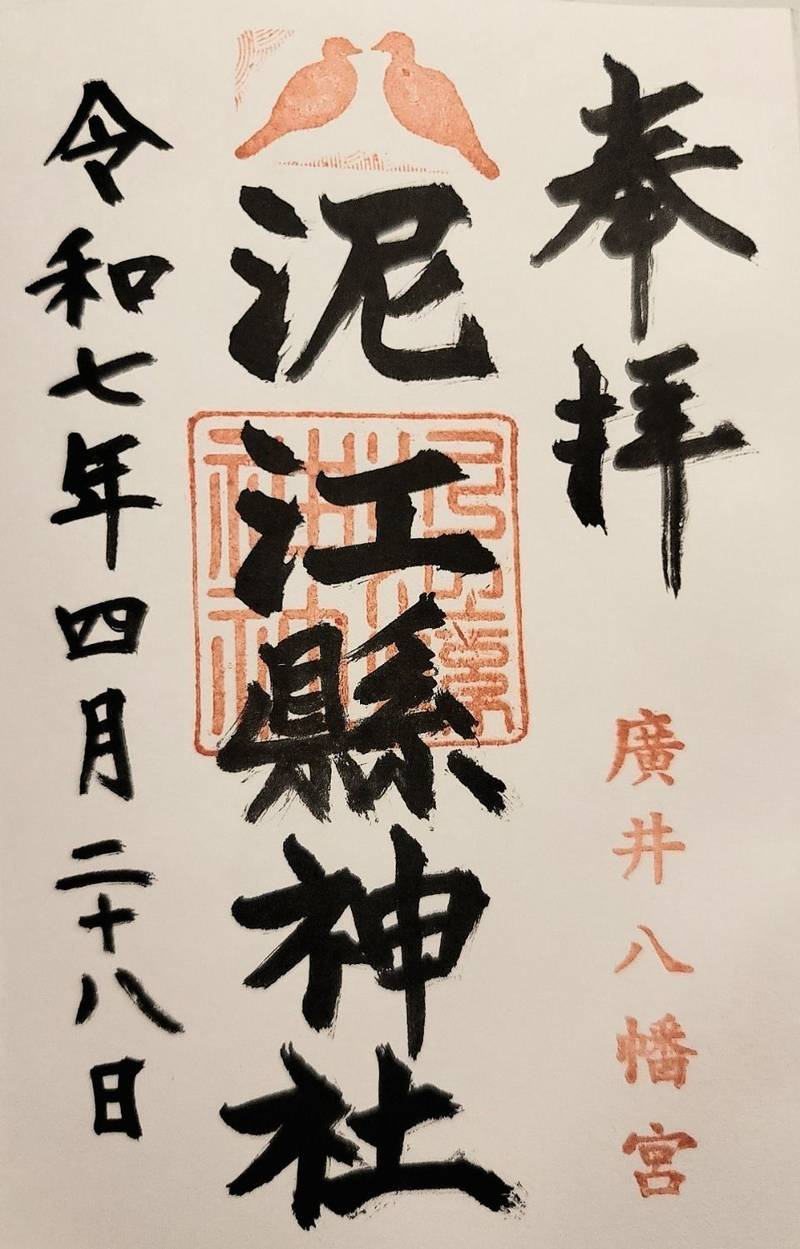 奉拝
廣井八幡宮
泥江縣神社
令和七年四月二十八日